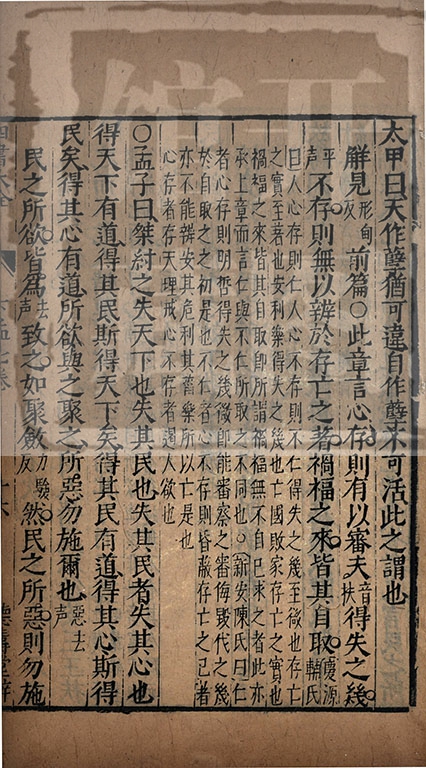 太甲曰天作孽猶可違自作孽不可活此之謂也
解見形甸反前篇○此章言心存則有以審夫音扶得失之幾
平聲不存則無以辨於存亡之著禍福之來皆其自取慶源輔氏
曰人心存則仁人心不存則不仁得失之幾至微也存亡
之實至著也安利樂得失之幾也亡國敗家存亡之實也
禍福之來皆其自取即所謂禍福無不自己求之者此亦
承上章而言仁與不仁所取之不同也○新安陳氏曰仁
者心存則明哲得失之幾微即能審察之審侮毀伐之幾
於自取之之初是也不仁者心不存則昏蔽存亡之已著
亦不能辨安其危利其菑樂所以亡是也
心存者存天理戒心不存者遏人欲也
○孟子曰桀紂之失天下也失其民也失其民者失其心也
得天下有道得其民斯得天下矣得其民有道得其心斯得
民矣得其心有道所欲與之聚之所惡去聲勿施爾也
民之所欲皆為去聲致之如聚斂力驗反然民之所惡則勿施